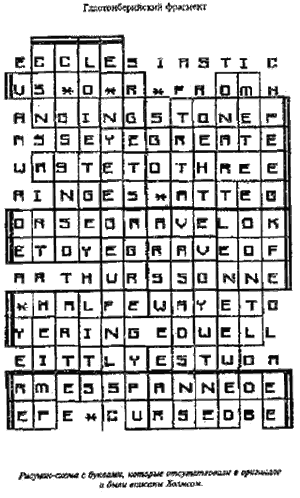 Гластонберийский фрагмент
E C C L E S I A S T I C
U S * O * R * F R O M H
A N D I N G S T O N E F
A S S E Y E G R E A T E
W A S T E T O T H R E E
R I N G E S * A T T E G
O R S E G R A V E L O K
E T O Y E G R A V E O F
A R T H U R S S O N N E
* H A L F E W A Y E T O
Y E R I N G E D W E L L
E I T T L Y E S T W O R
A M E S S P A N N E D E
E F E * C U R S E D B E
Рисунок-схема с буквами, которые отсутствовали в оригинале
и были вписаны Холмсом.